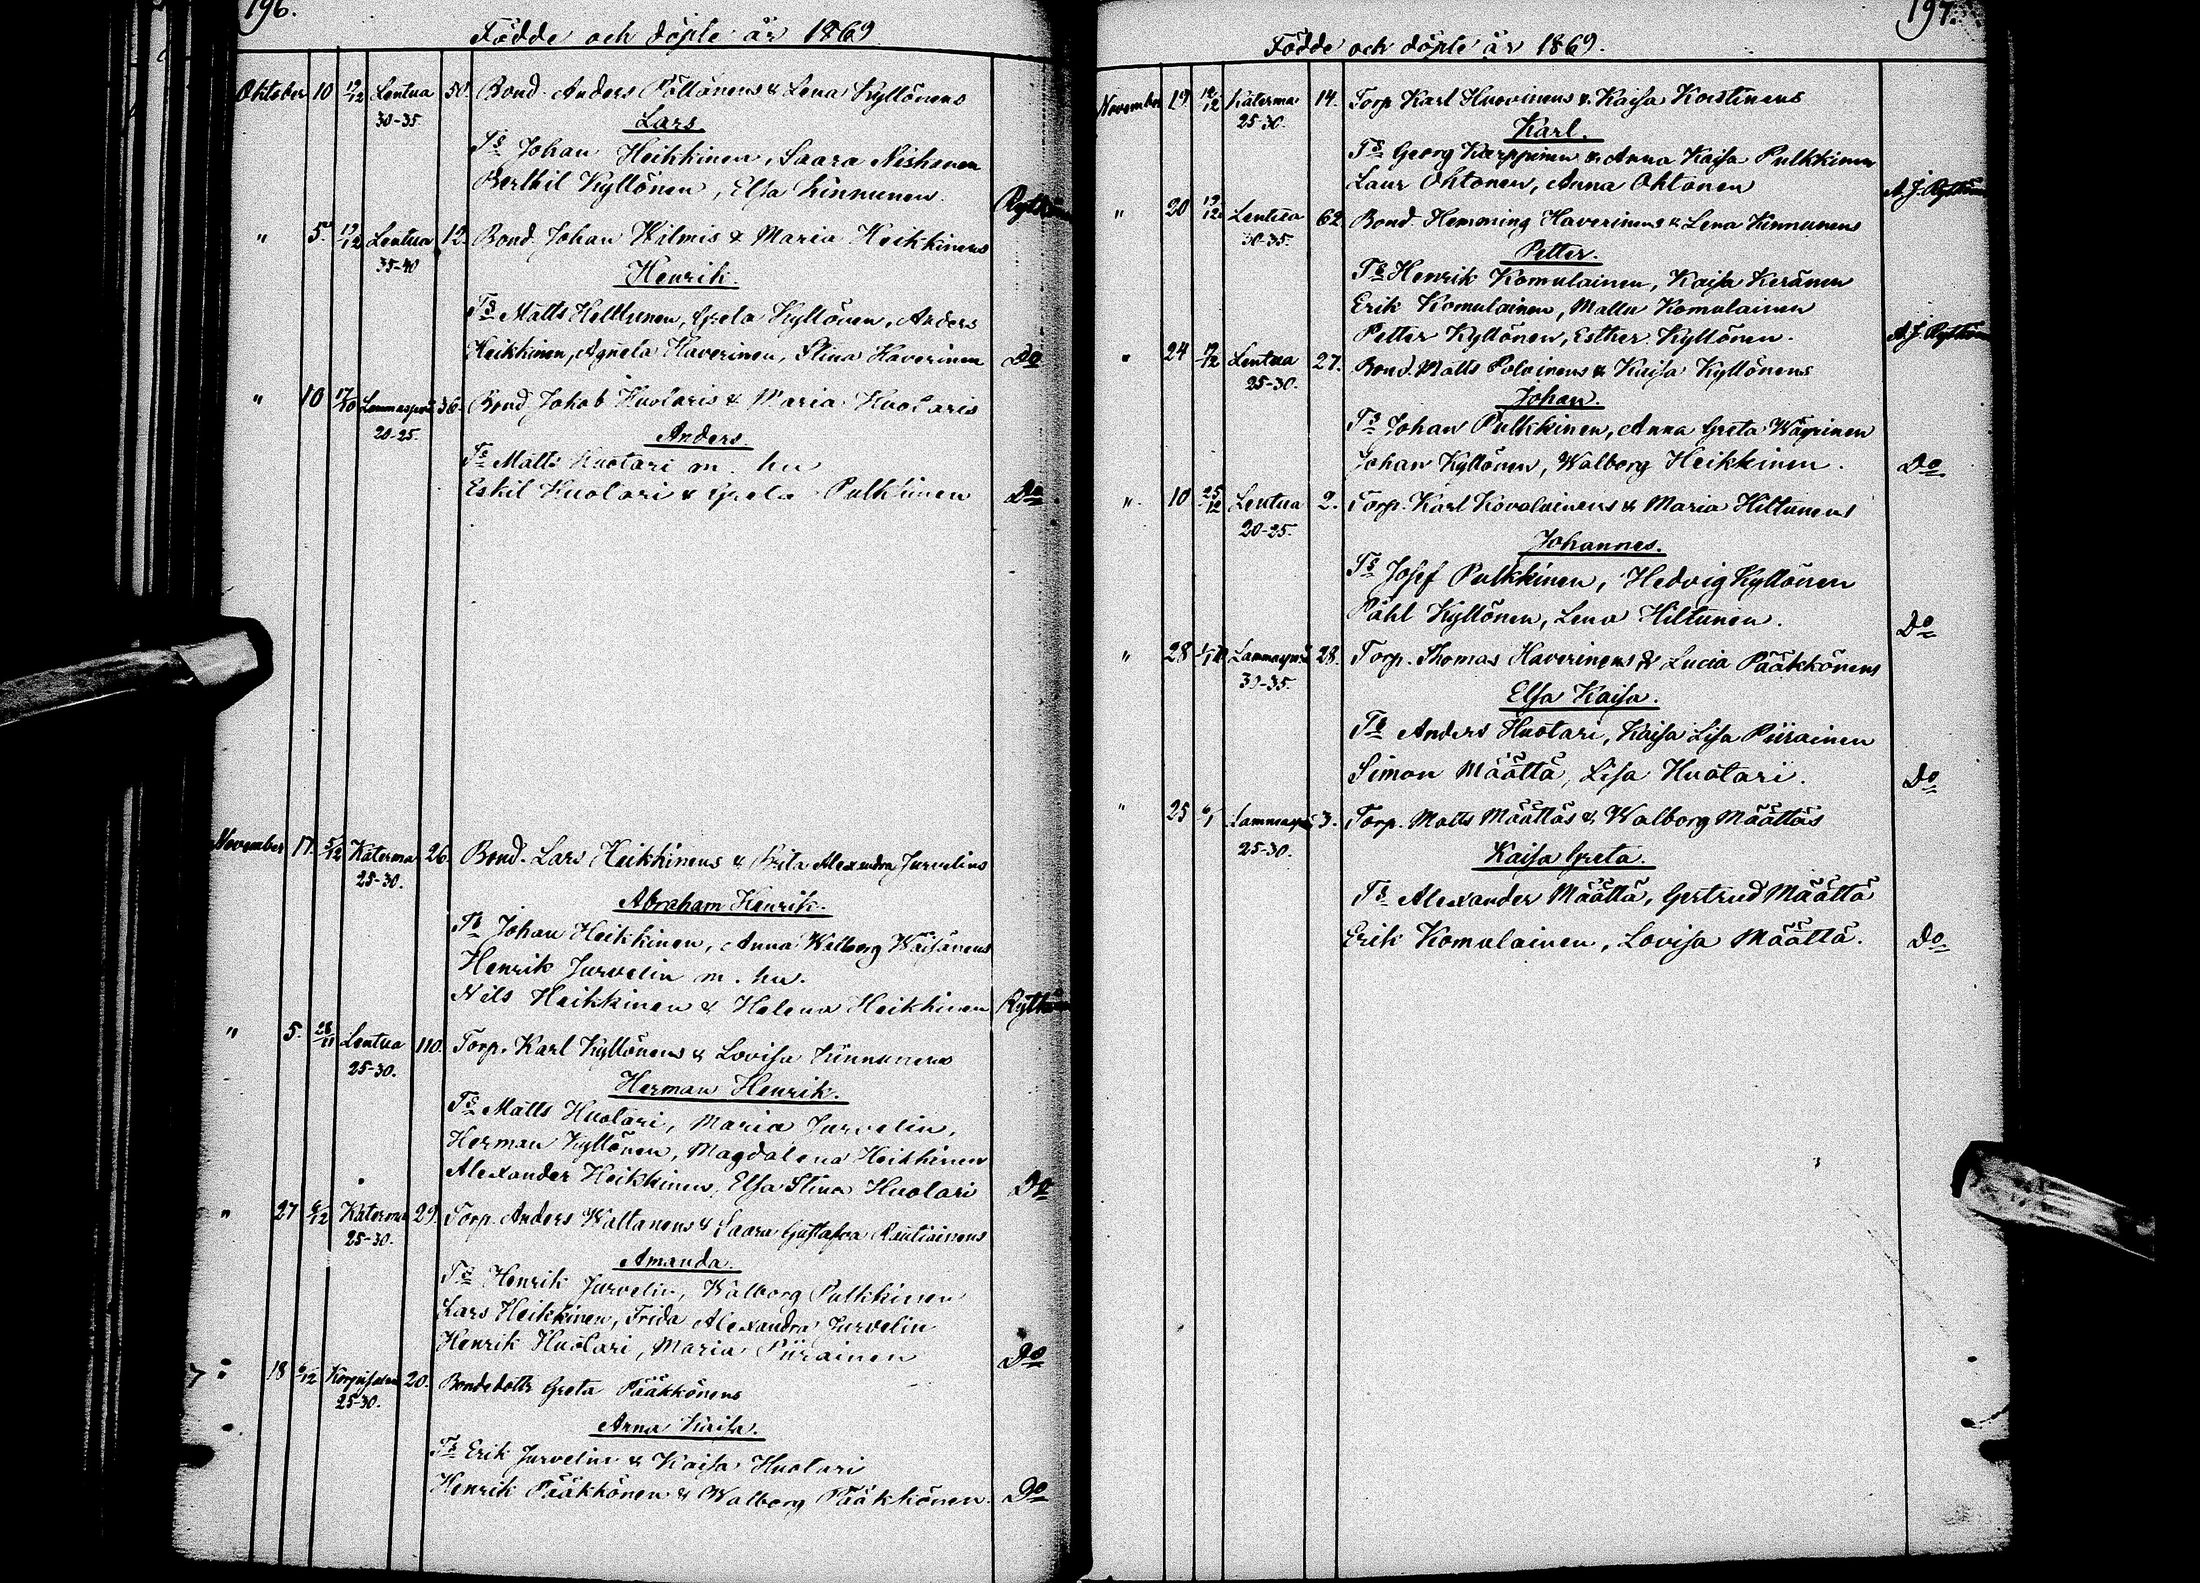 196.
Födde och döpte år 1869
Oktober 10 19/12 Lentua 50. Bond. Anders Pöllänens & Lena Kyllönens
30-35 Lars.
Ts Johan Heikkinen, Saara Niskanen
Berthil Kyllönen, Elsa Kinnunen. Ryth
" 5. 19/12 Lentua 12. Bond. Johan Wilmis & Maria Heikkinens
35-40 Henrik.
Ts Matts Helttunen, Greta Kyllönen, Anders
Heikkinen, Agneta Haverinen, Stina Haverinen Do
" 10 17/10 Lammasperä 36. Bond Jakob Huotaris & Maria Huotaris
20-25. Anders.
Ts Matts Huotari m. hu
Eskil Huotari & Greta Pulkkinen Do
November 17. 5/12 Katerma 26. Bond. Lars Heikkinens & Frita Alexandra Jurvelius
25-30. Abraham Henrik.
Ts Johan Heikkinen, Anna Walborg Wäisänens
Henrik Jurvelin m. hu.
Nils Heikkinen & Helena Heikkinen Ryth
" 5. 28/11 Lentua 110. Torp. Karl Kyllönens & Lovisa Kinnunens
25-30. Herman Henrik.
Ts Matts Huotari, Maria Jurvelin,
Herman Kyllönen, Magdalena Heikkinen
Alexander Heikkinen, Elsa Stina Huotari Do
" 27 6/12 Katerma 29. Torp. Anders Waltanens & Saara Gustafva Rautiainens
25-30. Amanda.
Ts Henrik Jurvelin, Walborg Pulkkinen
Lars Heikkinen, Frida Alexandra Jurvelin
Henrik Huotari, Maria Piirainen Do
18 6/12 20. Bondedottr Greta Pääkkönens
25-30. Anna Kaisa.
Ts Erik Jurvelin & Kaisa Huotari
Henrik Pääkkönen & Walborg Pääkkönen. Do
197.
Födde och döpte år 1869.
November 19. 12/12 Katerma 14. Torp Karl Huovinens & Kaisa Korstinens
25-30. Karl.
Ts Georg Karppinen & Anna Kaisa Pulkkinen
Laur Ohtonen, Anna Ohtonen A. J. Ryth
" 20 19/12 Lentua 62 Bond. Hemming Haverinens & Lena Kinnunens
30-35. Petter.
Ts Henrik Komulainen, Kaisa Keränen
Erik Komulainen, Mallu Komulainen
Petter Kyllönen, Esther Kyllönen. A. J. Ryth
" 24 19/12 Lentua 27. Bond. Matts Polvinens & Kaisa Kyllönens
25-30. Johan.
Ts Johan Pulkkinen, Anna Greta Wäyrinen
Johan Kyllönen, Walborg Heikkinen. Do
" 10 25/12 Lentua 2. Torp. Karl Kovalainens & Maria Hiltunens
20-25. Johannes.
Ts Josef Pulkkinen, Hedvig Kyllönen
Påhl Kyllönen, Lena Hiltunen. Do
" 28 Lammasperä 28. Torp. Thomas Haverinens & Lucia Pääkkönens
30-35. Elsa Kaisa.
Ts Anders Huotari, Kaisa Lisa Piirainen
Simon Määttä, Lisa Huotari. Do
" 25 6/1 Lammasperä 3. Torp. Matts Määttäs & Walborg Määttäs
25-30. Kaisa Greta.
Ts Alexander Määttä, Gertrud Määttä
Erik Komulainen, Lovisa Määttä. Do